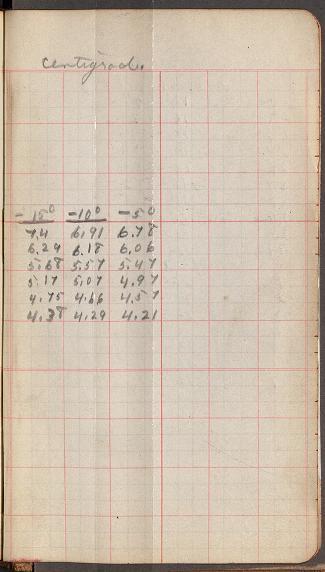 centigrade
-15° -10° -5°
7.4 6.91 6.78
6.29 6.18 6.06
5.68 5.57 5.47
5.17 5.07 4.97
4.75 4.66 4.57
4.38 4.29 4.21